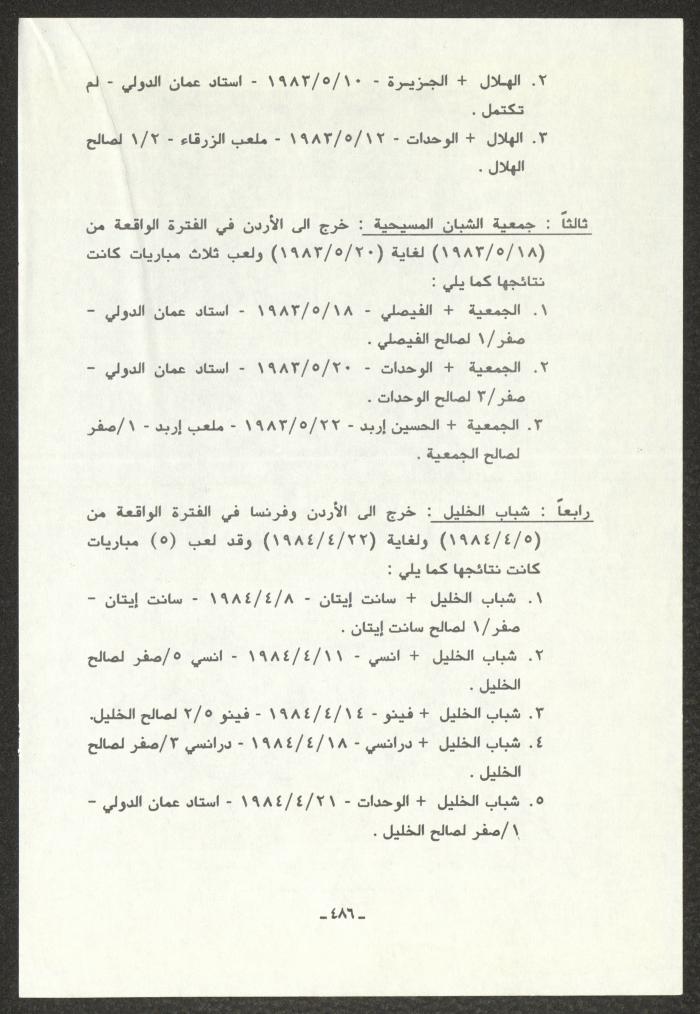 ٢. الهلال + الجزيرة - ١٩٨٣/٥/١٠ - استاد عمان الدولي - لم
تكتمل .
٣. الهلال + الوحدات - ١٩٨٣/٥/١٢ - ملعب الزرقاء - ١/٢ لصالح
الهلال .
ثالثاً : جمعية الشبان المسيحية : خرج الى الأردن في الفترة الواقعة من
(١٩٨٣/٥/١٨) لغاية (١٩٨٣/٥/٢٠) ولعب ثلاث مباريات كانت
نتائجها كما يلي :
١. الجمعية + الفيصلي - ١٩٨٣/٥/١٨ - استاد عمان الدولي –
صفر/١ لصالح الفيصلي .
٢. الجمعية + الوحدات - ١٩٨٣/٥/٢٠ - استاد عمان الدولي –
صفر/٣ لصالح الوحدات .
٣. الجمعية + الحسين إربد - ١٩٨٣/٥/٢٢ - ملعب إربد - ١/صفر
لصالح الجمعية .
رابعاً : شباب الخليل : خرج الى الأردن وفرنسا في الفترة الواقعة من
(١٩٨٤/٤/٥) ولغاية (١٩٨٤/٤/٢٢) وقد لعب (٥) مباريات
كانت نتائجها كما يلي :
١. شباب الخليل + سانت إيتان - ١٩٨٤/٤/٨ - سانت إيتان –
صفر/١ لصالح سانت إيتان .
٢. شباب الخليل + انسي - ١٩٨٤/٤/١١ - انسي ٥/صفر لصالح
الخليل .
٣. شباب الخليل + فينو - ١٩٨٤/٤/١٤ - فينو ٢/٥ لصالح الخليل.
٤. شباب الخليل + درانسي - ١٩٨٤/٤/١٨ - درانسي ٣/صفر لصالح
الخليل .
٥. شباب الخليل + الوحدات - ١٩٨٤/٤/٢١ - استاد عمان الدولي –
١/صفر لصالح الخليل .
ـ ٤٨٦ ـ